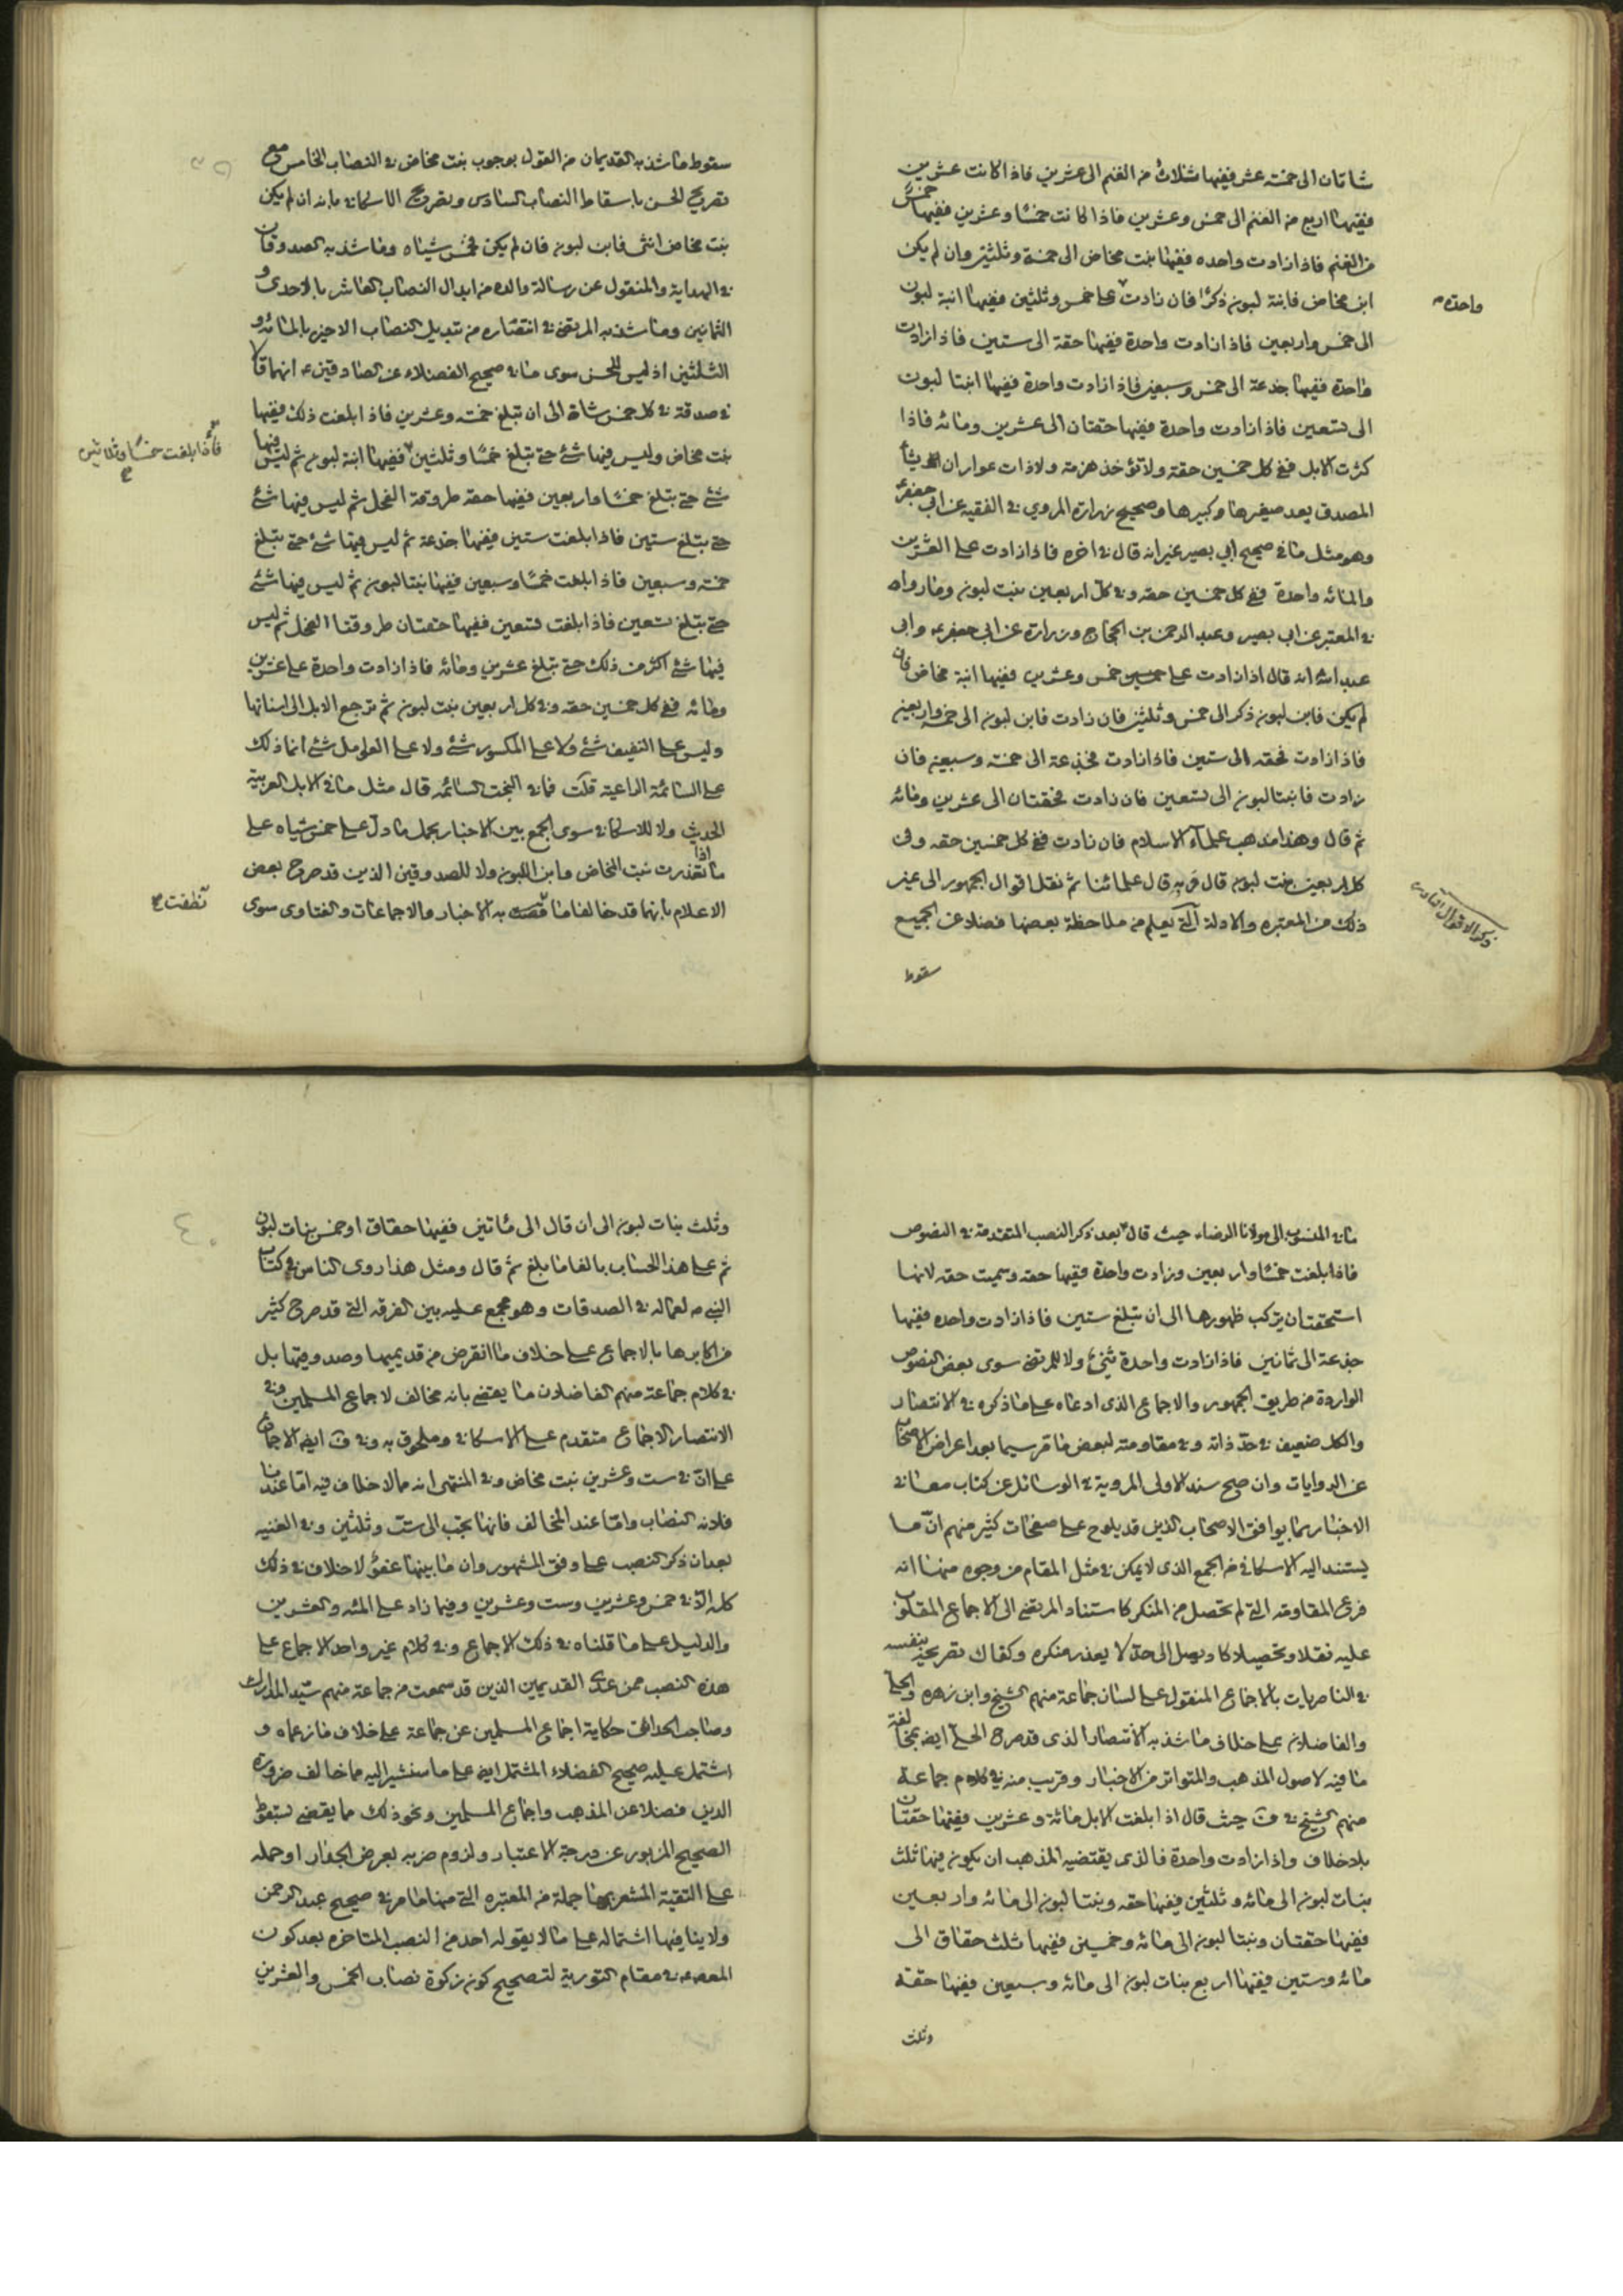 شاتان الى خمسة عشر ففيها ثلاث من الغنم الى عشرين فاذا كانت عشرين
ففيها اربع من الغنم الى خمس وعشرين فاذا كانت خمسا وعشرين ففيها خمس
من الغنم فاذا زادت واحده ففيها بنت مخاض الى خمسة وثلثين وان لم يكن
ابن مخاض فابنة لبون ذكرا فان زادت على خمس وثلثين ففيها ابنة لبون
واحدة
الى خمس واربعين فاذا زادت واحدة ففيها حقة الى ستين فاذا زادت
واحدة ففيها جذعة الى خمس وسبعين فاذا زادت واحدة ففيها ابنتا لبون
الى تسعين فاذا زادت واحدة ففيها حقتان الى عشرين ومائه فاذا
كثرت الابل ففي كل خمسين حقة ولا تؤخذ هرمة ولا ذات عوار ان يشاء
المصدق يعد صغيرها وكبيرها وصحيح زرارة المروي في الفقيه عن ابي جعفر
وهو مثل ما في صحيح ابي بصير غير انه قال في اخره فاذا زادت على العشرين
والمائه واحدة ففي كل خمسين حقه وفي كل اربعين بنت لبون وما رواه
في المعتبر عن ابي بصير وعبد الرحمن بن الحجاج وزرارة عن ابي جعفر وابي
عبد الله انه قال اذا زادت على خمس وعشرين ففيها ابنة مخاض فان
لم يكن فابن لبون ذكر الى خمس وثلثين فان زادت فابن لبون الى خمس واربعين
فاذا زادت فحقه الى ستين فاذا زادت فجذعة الى خمسة وسبعين فان
زادت فابنتا لبون الى تسعين فان زادت فحقتان الى عشرين ومائه
ثم قال وهذا مذهب علماء الاسلام فان زادت ففي كل خمسين حقه وفي
كل اربعين بنت لبون قال وبه قال علمائنا ثم نقل اقوال الجمهور الى غير
ذلك من المعتبره والادلة التي يعلم من ملاحظة بعضها فضلا عن الجميع
ذكر الاقوال النادرة
سقوط
سقوط ما شذ به القديمان من القول بوجوب بنت مخاض في النصاب الخامس مع
تصريح الحسن باسقاط النصاب السادس وتصريح الاسكافي بانه ان لم يكن
بنت مخاض انثى فابن لبون فان لم يكن فخمس شياه وما شذ به الصدوقان
في الهداية والمنقول عن رسالة والده من ابدال النصاب العاشر بالاحدى و
الثمانين وما شذ به المرتضى في انتصاره من تبديل النصاب الاخير بالمائه و
الثلثين اذ ليس للحسن سوى ما في صحيح الفضلاء عن الصادقين انهما قالا
في صدقة في كل خمس شاة الى ان تبلغ خمسة وعشرين فاذا بلغت ذلك ففيها
بنت مخاض وليس فيها شئ حتى تبلغ خمسا وثلثين ففيها ابنة لبون ثم ليس فيها
فاذا بلغت خمسا وثلاثين
شئ حتى تبلغ خمسا واربعين ففيها حقه طروقة الفحل ثم ليس فيها شئ
حتى تبلغ ستين فاذا بلغت ستين ففيها جذعة ثم ليس فيها شئ حتى تبلغ
خمسة وسبعين فاذا بلغت خمسا وسبعين ففيها بنتا لبون ثم ليس فيها شئ
حتى تبلغ تسعين فاذا بلغت تسعين ففيها حقتان طروقتا الفحل ثم ليس
فيها شئ اكثر من ذلك حتى تبلغ عشرين ومائه فاذا زادت واحدة على عشرين
ومائه ففي كل خمسين حقه وفي كل اربعين بنت لبون ثم ترجع الابل الى اسنانها
وليس على النيف شئ ولا على الكسور شئ ولا على العوامل شئ انما ذلك
على السائمة الراعية قلت فما في البخت السائمه قال مثل ما في الابل العربية
الحديث ولا للاسكافي سوى الجمع بين الاخبار بحمل ما دل على خمس شياه على
ما اذا تعذرت بنت المخاض وابن اللبون ولا للصدوقين الذين قد صرح بعض
الاعلام بانهما قد خالفا ما به الاخبار والاجماعات والفتاوى سوى
نطقت
ما في المنسوب الى مولانا الرضا حيث قال بعد ذكر النصب المتقدمة في النصوص
فاذا بلغت خمسا واربعين وزادت واحدة ففيها حقه وسميت حقه لانها
استحقت ان يركب ظهورها الى ان تبلغ ستين فاذا زادت واحده ففيها
جذعة الى ثمانين فاذا زادت واحدة ثنى ولا للمرتضى سوى بعض النصوص
الواردة من طريق الجمهور والاجماع الذى ادعاه على ما ذكره في الانتصار
والكل ضعيف في حد ذاته وفي مقاومته لبعض ما مر سيما بعد اعراض الاصحاب
عن الروايات وان صح سند الاولى المروية في الوسائل عن كتاب معاني
الاخبار بما يوافق الاصحاب الذين قد يلوح على صفحات كثير منهم ان ما
يستند اليه الاسكافي من الجمع الذى لا يمكن في مثل المقام من وجوه منها انه
فرع المقاومه التي لم تحصل من المنكر كاستناد المرتضى الى الاجماع المقلوب
عليه نقلا وتحصيلا كاد يصل الى حد لا يعذر منكره وكفاك تصريحه بنفسه
في الناصريات بالاجماع المنقول على لسان جماعة منهم الشيخ وابن زهره والحلي
والفاضلان على خلاف ما شذ به الانتصار الذى قد صرح الحلي ايضا بمخالفة
ما فيه لاصول المذهب والمتواتر من الاخبار وقريب منه في كلام جماعة
منهم الشيخ في ف حيث قال اذا بلغت الابل مائة وعشرين ففيها حقتان
بلا خلاف واذا زادت واحدة فالذى يقتضيه المذهب ان يكون فيها ثلث
بنات لبون الى مائه وثلثين ففيها حقه وبنتا لبون الى مائه واربعين
ففيها حقتان وبنتا لبون الى مائه وخمسين ففيها ثلث حقاق الى
مائه وستين ففيها اربع بنات لبون الى مائه وسبعين ففيها حقة
وثلث
وثلث بنات لبون الى ان قال الى مأتين ففيها حقاق او خمس بنات لبون
ثم على هذا الحساب بالغا ما بلغ ثم قال ومثل هذا روى الناس في كتاب
النبي ص لعماله في الصدقات وهو مجمع عليه بين الفرقه التي قد صرح كثير
من اكابرها بالاجماع على خلاف ما انقرض من قديميها وصدوقيها بل
في كلام جماعة منهم الفاضلان ما يقضي بانه مخالف لاجماع المسلمين وفي
الانتصار الاجماع متقدم على الاسكافي وملحوق به وفي ف ايضا الاجماع
على ان في ست وعشرين بنت مخاض وفي المنتهى انه مما لا خلاف فيه اما عندنا
فلانه النصاب واما عند المخالف فانها تجب الى ست وثلثين وفي الغنيه
بعد ان ذكر النصب على وفق المشهور وان ما بينها عفو لا خلاف في ذلك
كله الا في خمس وعشرين وست وعشرين وفيما زاد على المئه والعشرين
والدليل على ما قلناه في ذلك الاجماع وفي كلام غير واحد الاجماع على
هذه النصب ممن عدى القديمين الذين قد سمعت من جماعة منهم سيد المدارك
وصاحب الحدائق حكاية اجماع المسلمين عن جماعة على خلاف ما زعماه و
اشتمل عليه صحيح الفضلاء المشتمل ايضا على ما سنشير اليه مما خالف ضرورة
الدين فضلا عن المذهب واجماع المسلمين ونحو ذلك مما يقضي بسقوط
الصحيح المزبور عن درجة الاعتبار ولزوم ضربه بعرض الجدار او حمله
على التقية المشعر بها جملة من المعتبره التي منها ما مر في صحيح عبد الرحمن
ولا ينافيها اشتماله على ما لا يقوله احد من النصب المتاخره بعد كون
في مقام التورية لتصحيح كون زكوة نصاب الخمس والعشرين